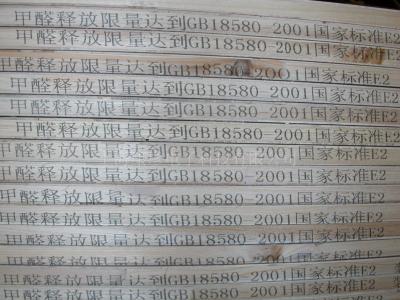 甲醛释放限量达到GB18580-2001国家标准E2
甲醛释放限量达到GB18580-2001国家标准E2
甲醛释放限量达到GB18580-2001国家标准E2
甲醛释放限量达到GB18580-2001国家标准E2
甲醛释放限量达到GB18580-2001国家标准E2
甲醛释放限量达到GB18580-2001国家标准E2
甲醛释放限量达到GB18580-2001国家标准E2
甲醛释放限量达到GB18580-2001国家标准E2
甲醛释放限量达到GB18580-2001国家标准E2
甲醛释放限量达到GB18580-2001国家标准E2
甲醛释放限量达到GB18580-2001国家标准E2
甲醛释放限量达到GB18580-2001国家标准E2
甲醛释放限量达到GB18580-2001国家标准E2